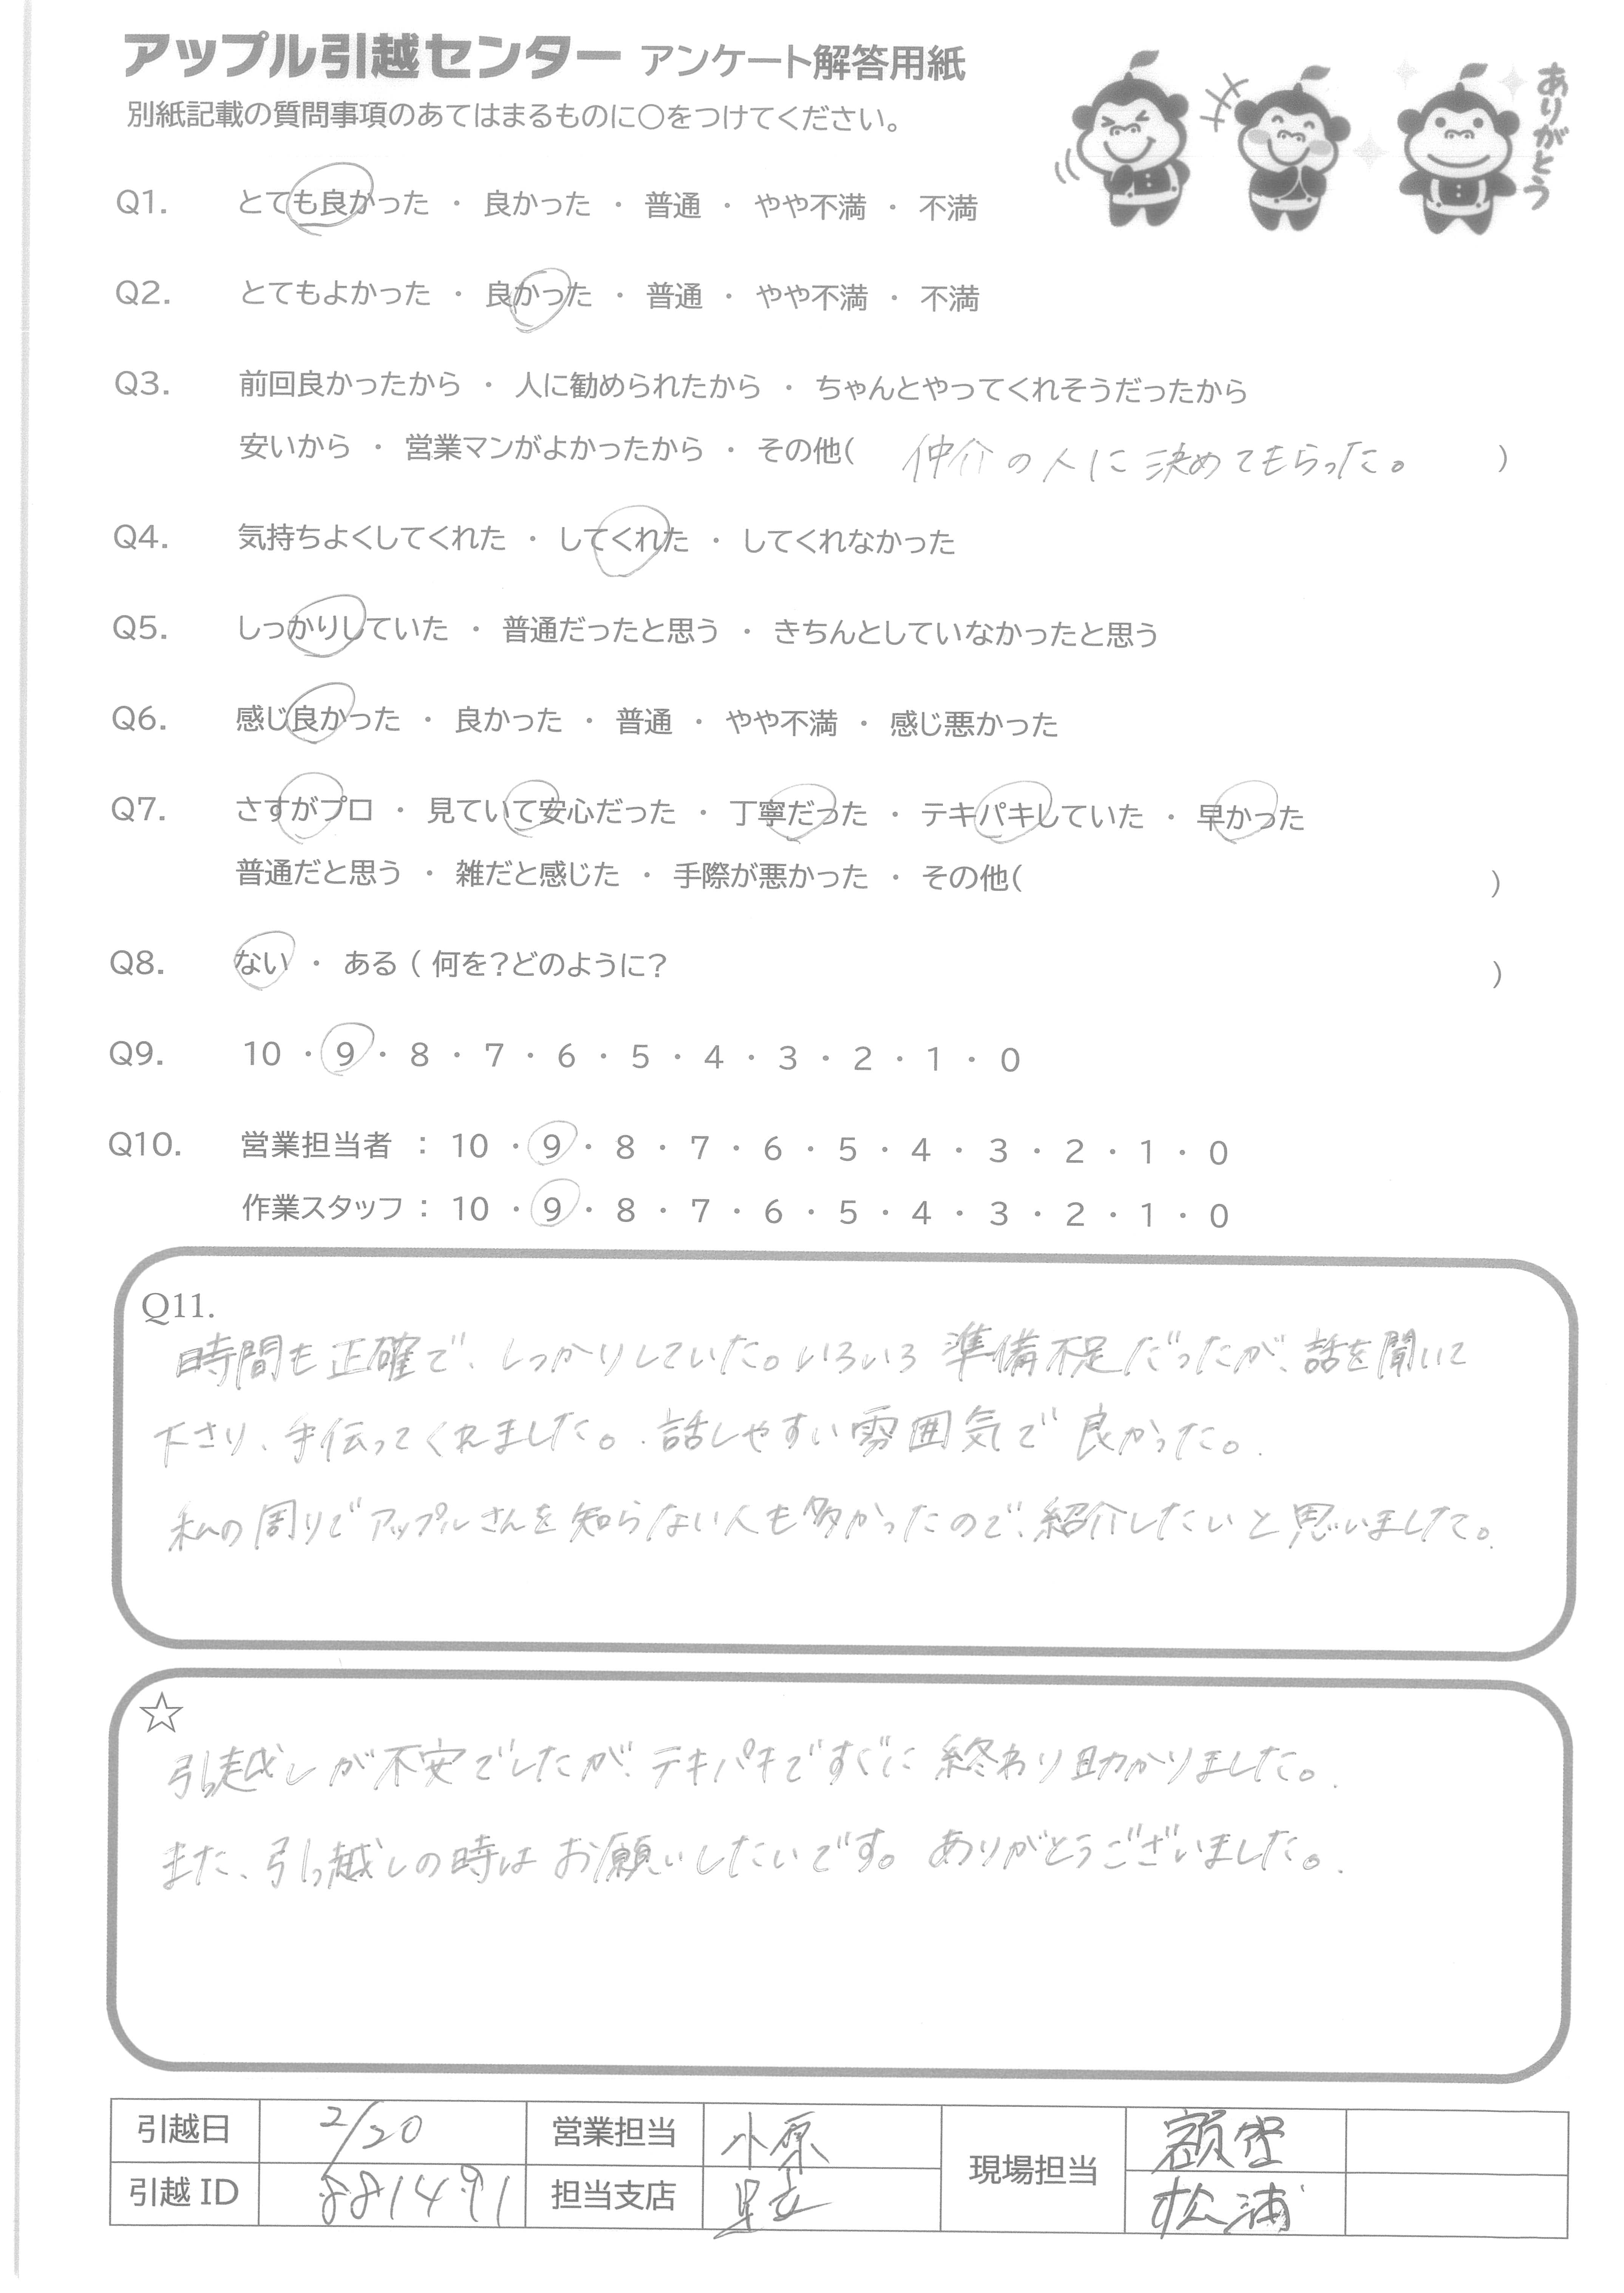 アップル引越センター アンケート解答用紙
別紙記載の質問事項のあてはまるものに○をつけてください。
ありがとう
Q1. とても良かった ・ 良かった ・ 普通 ・ やや不満 ・ 不満
Q2. とてもよかった ・ 良かった ・ 普通 ・ やや不満 ・ 不満
Q3. 前回良かったから ・ 人に勧められたから ・ ちゃんとやってくれそうだったから
安いから ・ 営業マンがよかったから ・ その他( 仲介の人に決めてもらった。 )
Q4. 気持ちよくしてくれた ・ してくれた ・ してくれなかった
Q5. しっかりしていた ・ 普通だったと思う ・ きちんとしていなかったと思う
Q6. 感じ良かった ・ 良かった ・ 普通 ・ やや不満 ・ 感じ悪かった
Q7. さすがプロ ・ 見ていて安心だった ・ 丁寧だった ・ テキパキしていた ・ 早かった
普通だと思う ・ 雑だと感じた ・ 手際が悪かった ・ その他( )
Q8. ない ・ ある ( 何を?どのように? )
Q9. 10 ・ 9 ・ 8 ・ 7 ・ 6 ・ 5 ・ 4 ・ 3 ・ 2 ・ 1 ・ 0
Q10. 営業担当者 : 10 ・ 9 ・ 8 ・ 7 ・ 6 ・ 5 ・ 4 ・ 3 ・ 2 ・ 1 ・ 0
作業スタッフ : 10 ・ 9 ・ 8 ・ 7 ・ 6 ・ 5 ・ 4 ・ 3 ・ 2 ・ 1 ・ 0
Q11.
時間も正確で、しっかりしていた。いろいろ準備不足だったが、話を聞いて
下さり、手伝ってくれました。話しやすい雰囲気で良かった。
私の周りでアップルさんを知らない人も多かったので、紹介したいと思いました。
☆
引っ越しが不安でしたが、テキパキですぐに終わり助かりました。
また、引っ越しの時はお願いしたいです。ありがとうございました。
引越日 2/20 営業担当 小原 現場担当
引越 ID 881491 担当支店 足立 松浦